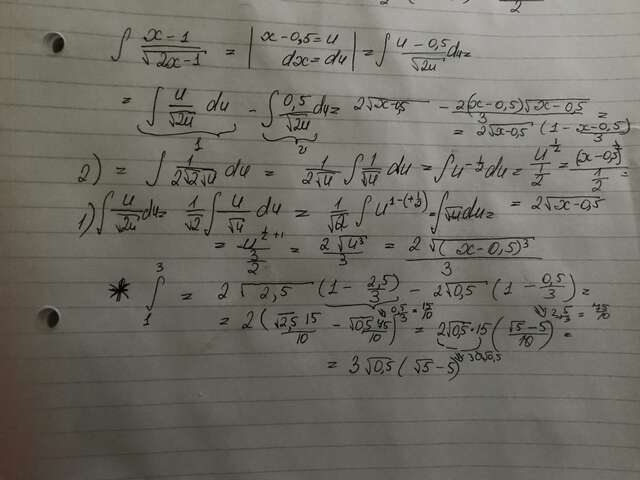 ∫ x-1/√2x-1 = | x-0,5=u dx=du | = ∫ u-0,5/√2u du=
= ∫ u/√2u du - ∫ 0,5/√2u du = 2√x-0,5 - 2(x-0,5)√x-0,5/3 =
1 2 = 2√x-0,5 (1 - x-0,5/3)
2) = ∫ 1/2√2√u du = 1/2√u ∫ 1/√u du = ∫ u^-1/2 du = u^1/2/1/2 = (x-0,5)^1/2/1/2 =
= 2√x-0,5
1) ∫ u/√2u du = 1/√2 ∫ u/√u du = 1/√2 ∫ u^1-(+1/2) = ∫ √u du =
= u^1/2+1/3/2 = 2√u³/3 = 2√(x-0,5)³/3
* ∫ 3 1 = 2√2,5 (1 - 2,5/3) - 2√0,5 (1 - 0,5/3) =
= 2 (√2,5 15/10 - √0,5 45/10) = 2√0,5·15 (√5-5/10) =
= 3√0,5 (√5-5)